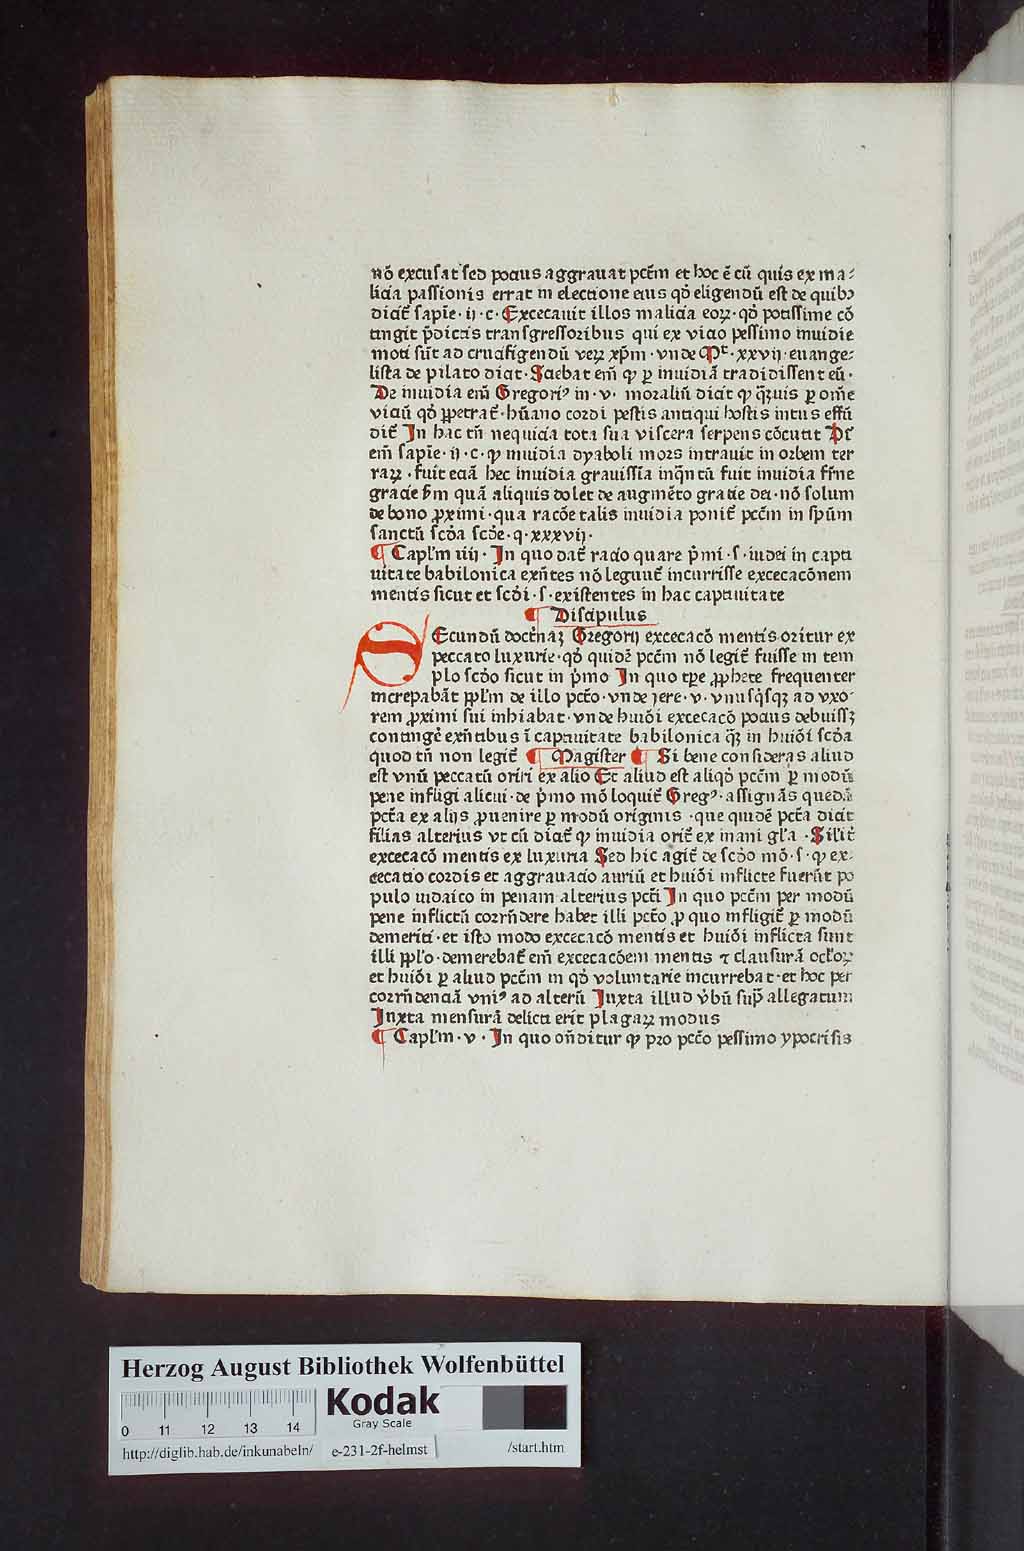 nō excusat sed pocius aggrauat pctm̄ et hoc ē cū quis ex ma⸗
licia passionis errat in electione eius qd̓ eligendū est de quibꝰ
dicit̄ sapīe · ij · c · Excecauit illos malicia eoꝝ · qd̓ potissime cō
tingit p̄dictis transgressoribus qui ex vicio pessimo inuidie
moti sūt ad crucifigendū veꝝ xp̄m · vnde Mt · xxvij · euange⸗
lista de pilato dicit · Sciebat em̄ ꝙ ꝑ inuidiā tradidissent eū ·
De inuidia em̄ Gregoriꝰ in · v · moraliū dicit ꝙ q̄ꝫuis ꝑ om̄e
viciū qd̓ ꝑpetrat̄ · hūano cordi pestis antiqui hostis intus effū
dit̄ In hac tn̄ nequicia tota sua viscera serpens cōcutit Dr̄
em̄ sapīe · ij · c · ꝙ inuidia dyaboli mors intrauit in orbem ter
raꝝ · fuit eciā hec inuidia grauissīa inq̄ntū fuit inuidia fr̄ne
gracie s̄m quā aliquis dolet de augmēto gracie dei · nō solum
de bono ꝓximi · qua racōe talis inuidia ponit̄ pctm̄ in spūm
sanctū scd̓a scd̓e · q · xxxvij ·
¶ Capl̄m iiij · In quo dat̄ racio quare p̄mi · s · iudei in capti
uitate babilonica exn̄tes nō legunt̄ incurrisse excecacōnem
mentis sicut et scd̓i · s · existentes in hac captiuitate
¶ Discipulus
SEcundū doctn̄aꝫ Gregorij excecacō mentis oritur ex
peccato luxurie · qd̓ quidē pctm̄ nō legit̄ fuisse in tem
plo scd̓o sicut in p̄mo In quo tꝑe ꝓphete frequenter
increpabāt ppl̄m de illo pctō · vnde jere · v · vnusq̄sqꝫ ad vxo⸗
rem ꝓximi sui inhiabat · vnde huiōi excecacō pocius debuissꝫ
contingēr exn̄tibus ī captiuitate babilonica q̄ꝫ in huiōi scd̓a
quod tn̄ non legit̄ ¶ Magister ¶ Si bene consideras aliud
est vnū peccatū oriri ex alio Et aliud est aliqd̓ pctm̄ ꝑ modū
pene infligi alicui · de p̄mo mō loquit̄ Gregꝰ · assignās quedā
pctā ex alijs ꝓuenire ꝑ modū originis · que quidē pctā dicit
filias alterius vt cū dicit̄ ꝙ inuidia orit̄ ex inani gl̄a · Silit̄
excecacō mentis ex luxuria Sed hic agit̄ de scd̓o mō · s · ꝙ ex⸗
cecatio cordis et aggrauacio auriū et huiōi inflicte fuerūt po
pulo iudaico in penam alterius pcti In quo pctm̄ per modū
pene inflictū corrn̄dere habet illi pctō ꝓ quo infligit̄ ꝑ modū
demeriti · et isto modo excecacō mentis et huiōi inflicta sunt
illi ppl̄o · demerebat̄ em̄ excecacōem mentis ⁊ clausurā ocl̄oꝝ
et huiōi ꝑ aliud pctm̄ in qd̓ voluntarie incurrebat · et hoc per
corrn̄denciā vniꝰ ad alterū Juxta illud v̓bū sup̄ allegatum
Juxta mensurā delicti erit plagaꝝ modus
¶ Capl̄m · v · In quo on̄ditur ꝙ pro pctō pessimo ypocrisis
Herzog August Bibliothek Wolfenbüttel
0 11 12 13 14
Kodak
Gray Scale
http://diglib.hab.de/inkunabeln/ e-231-2f-helmst /start.htm